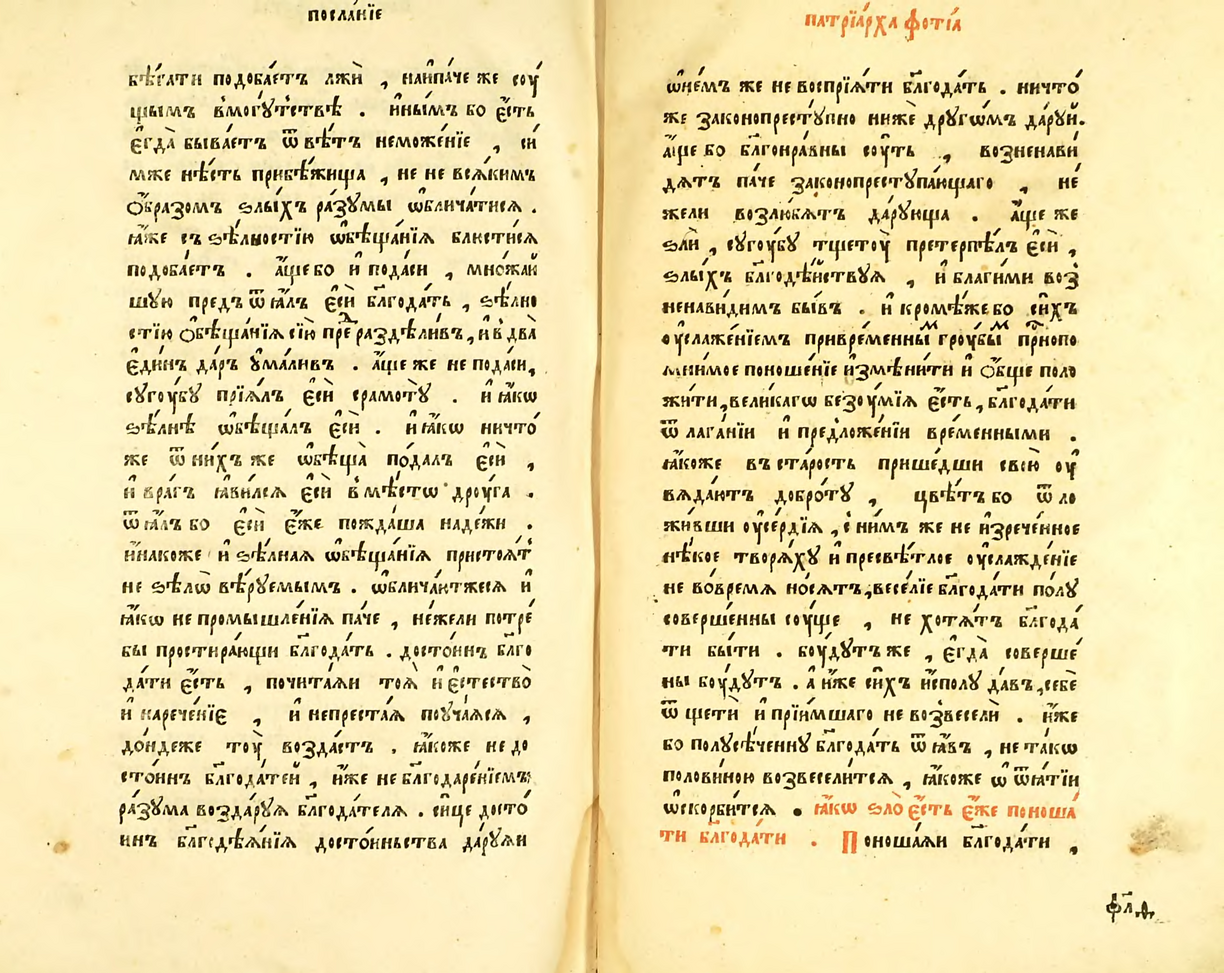 посла́нїе
бѣ́гати подоба́етъ лжѝ , наипа́че же соу́
щымъ в̾могу́тствѣ . и҆ны́мъ бо є҆́сть
є҆гда̀ быва́етъ ѿвѣ́тъ неможе́нїе , си́
мже нѣ́сть прибѣ́жища , не не вся́кимъ
ѻ҆́бразомъ ѕлы́хъ ра́зумы ѡ҆блича́тися .
ꙗ҆́же съ ѕѣ́лностїю ѡ҆бѣща́нїя блюсти́ся
подоба́етъ . а҆́ще бо и҆ пода́си , мно́жаи
шую предъ ѿѧ́лъ є҆сѝ бл҃года́ть , ѕѣ́лно
стїю ѻ҆бѣща́нїя сїю̀ пре раздѣли́въ , и҆ в̾ два̀
є҆ди́нъ да́ръ ᲂу҆ма́ливъ . а҆́ще же не пода́си ,
сугоу́бу прїѧ́лъ є҆сѝ срамоту̀ . и҆ ꙗ҆́кѡ
ѕѣ́лнѣ ѡ҆бѣща́лъ є҆сѝ . и҆ ꙗ҆́кѡ ничто́
же ѿ ни́хъ же ѡ҆бѣща̀ пода́лъ є҆сѝ ,
и҆ вра́гъ ꙗ҆ви́лся є҆сѝ в̾мѣ́стѡ дроу́га .
ѿѧ́лъ бо є҆сѝ є҆́же пожда́ша наде́жи .
и҆на́коже и҆ ѕѣ́лная ѡ҆бѣща́нїя пристоя́т
не ѕѣлѡ̀ вѣ́руемымъ . ѡ҆блича́ютжеся и҆
ꙗ҆́кѡ не промышле́нїя па́че , не́жели потре́
бы простира́ющи бл҃года́ть . досто́инъ бл҃го
да́ти є҆́сть , почита́яи тоя̀ и҆ є҆стество̀
и҆ нарече́нїе , и҆ непреста́я поуча́яся ,
до́ндеже тоу̀ возда́стъ . ꙗ҆́коже не до
сто́инъ бл҃года́тей , и҆́же не бл҃годаре́нїемъ
ра́зума возда́руя бл҃года́теля . си́це досто́
инъ бл҃гсдѣя́нїя досто́инъства да́руяи
патрїа́рха фо́тїа
ѡ҆не́мъ же не воспрїѧ́ти бл҃года́ть . ничто́
же законопресту́пно нижѐ другѡ́мъ да́руй .
а҆́ще бо бл҃гонра́вны соу́ть , возненави́
дятъ па́че законопреступа́ющаго , не́
жели возлю́бятъ да́рующа . а҆́ще же
ѕлѝ , сугоу́бу тщетоу̀ претерпѣ́лъ є҆сѝ ,
ѕлы́хъ бл҃годѣ́йствуя , и҆ благи́ми воз̾
ненави́димъ бы́въ . и҆ кромѣ́же бо си́хъ
ᲂу҆слажє́нїемъ привре́менны гроу́бы прнопо
мнимое поноше́нїе и҆змѣни́ти и҆ ѻ҆́бще поло
жи́ти , вели́кагѡ безоу́мїя є҆́сть , бл҃года́ти
ѿ лага́нїи и҆ пред̾ложе́нїи вре́менными .
ꙗ҆́коже въ ста́рость прише́дши свою̀ ᲂу҆
вяда́ютъ доброту̀ , цвѣ́тъ бо ѿло
жи́вши ᲂу҆се́рдїя , с̾ ни́мъ же не и҆зрече́нное
нѣ́кое творя́ху и҆ пресвѣ́тлое ᲂу҆слажде́нїе
не во́время но́сятъ , весе́лїе бл҃года́ти по́лу
соверше́нны соу́ще , не хотя́тъ бл҃года́
ти бы́ти . боу́дутъ же , є҆гда̀ соверше́
ны боу́дутъ . а҆ и҆́же си́хъ и҆спо́лу да́въ , себѐ
ѿщетѝ и҆ прїи́мшаго не воз̾веселѝ . и҆́же
бо полусѣ́ченну бл҃года́ть ѿѧ́въ , не та́кѡ
полови́ною возвесели́тся , ꙗ҆́коже ѡ҆ ѿѧ́тїи
ѡ҆скорби́тся . ꙗ҆́кѡ ѕло̀ є҆́сть є҆́же поноша́
ти бл҃года́ти . Поноша́яи бл҃года́ти ,